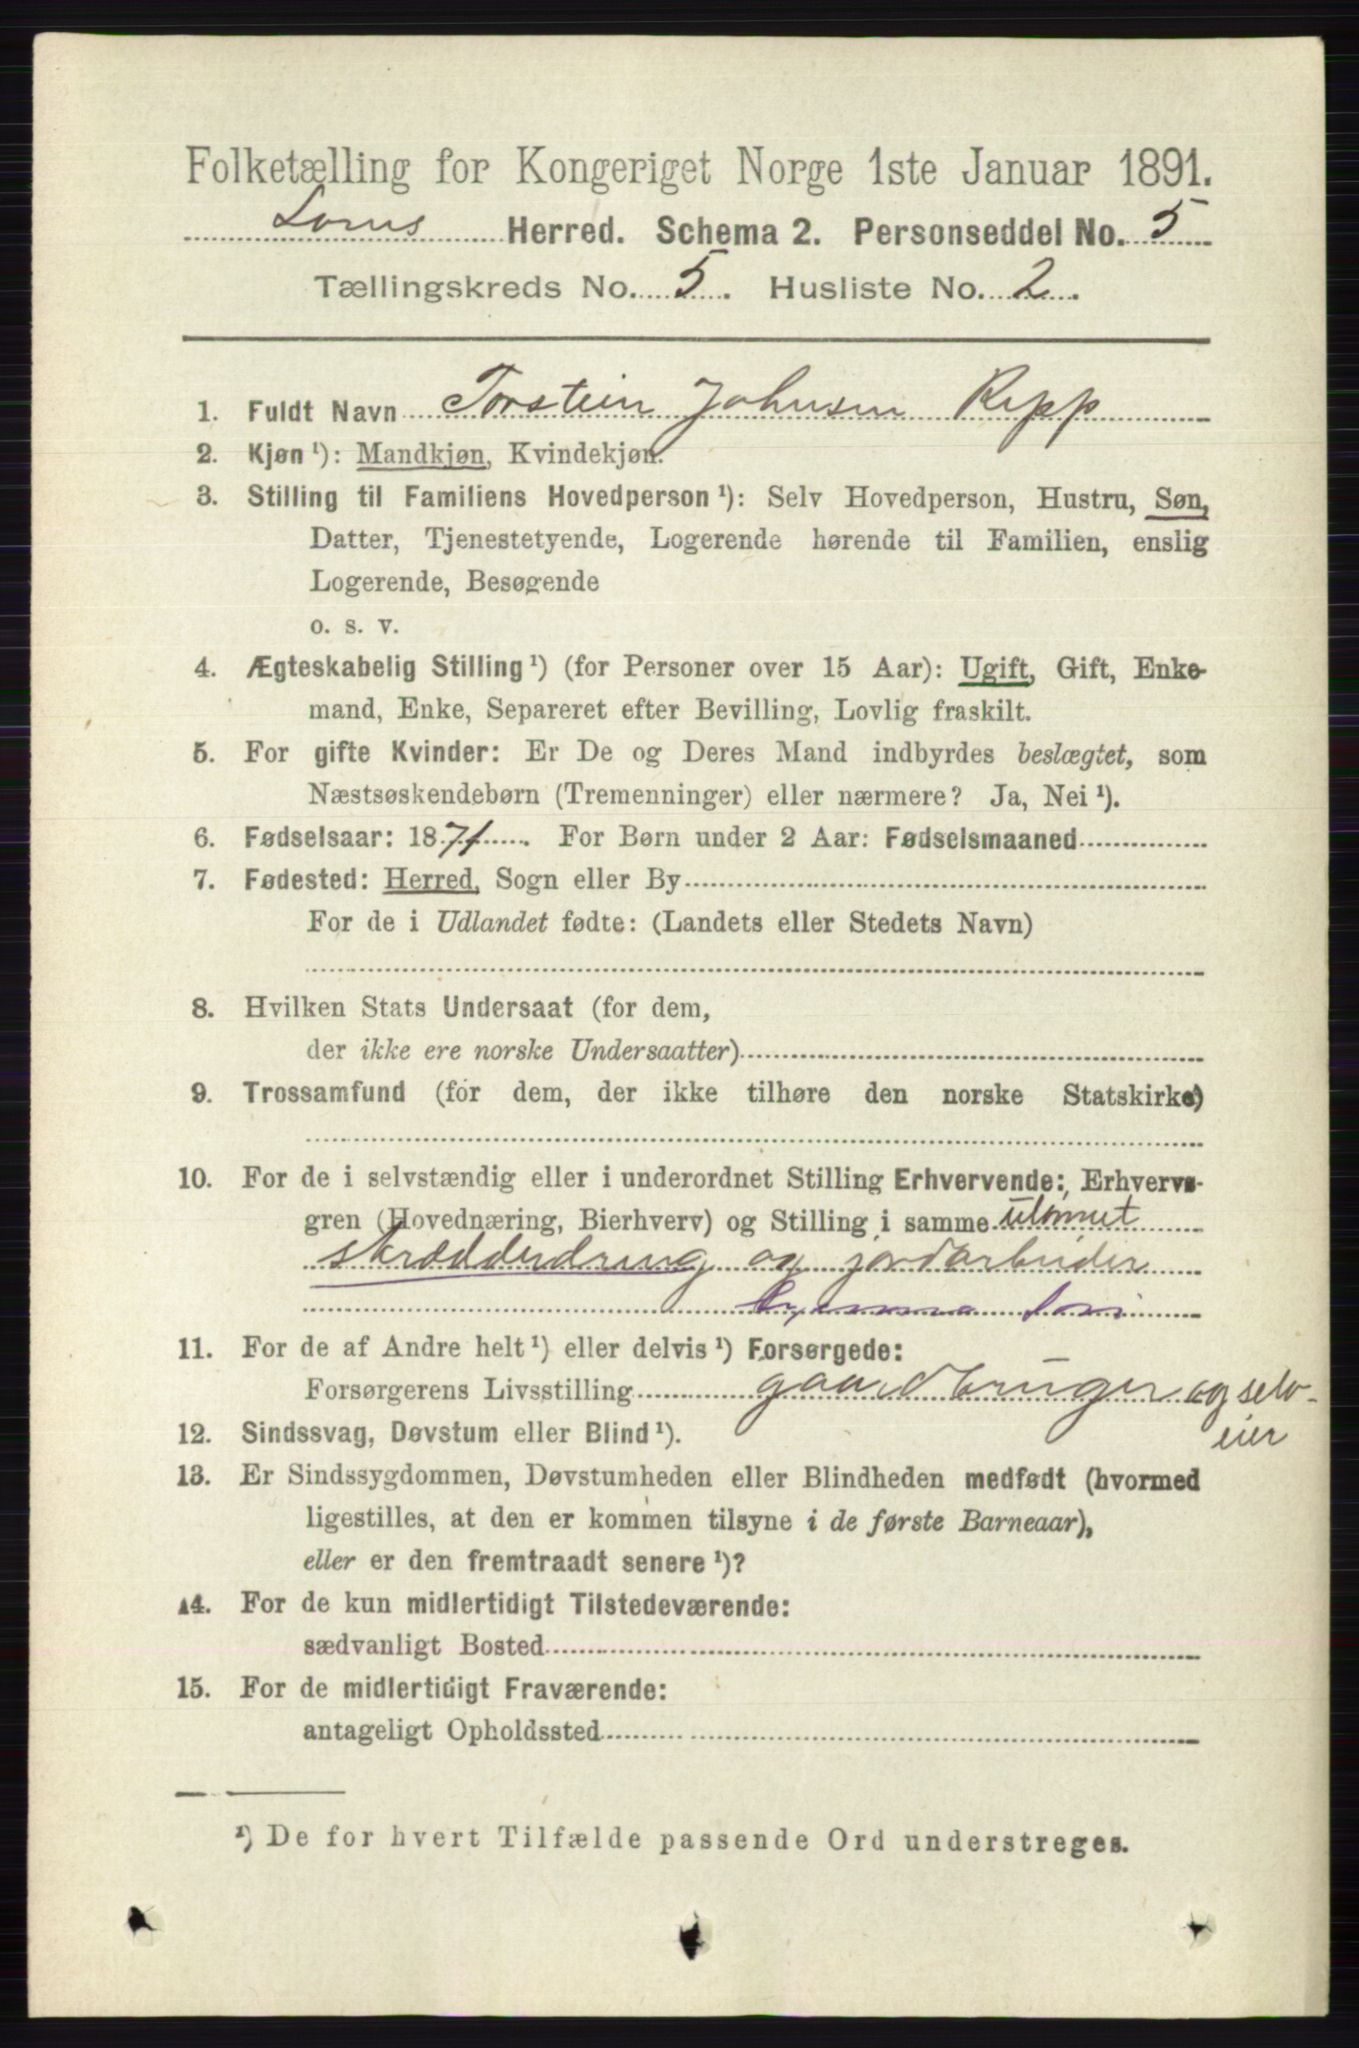 Folketælling for Kongeriget Norge 1ste Januar 1891.
Loms Herred. Schema 2. Personseddel No. 5
Tællingskreds No. 5. Husliste No. 2.
1. Fuldt Navn Torstein Johnsen Repp
2. Kjøn ¹): Mandkjøn, Kvindekjøn.
3. Stilling til Familiens Hovedperson ¹): Selv Hovedperson, Hustru, Søn,
Datter, Tjenestetyende, Logerende hørende til Familien, enslig
Logerende, Besøgende
o. s. v.
4. Ægteskabelig Stilling ¹) (for Personer over 15 Aar): Ugift, Gift, Enke-
mand, Enke, Separeret efter Bevilling, Lovlig fraskilt.
5. For gifte Kvinder: Er De og Deres Mand indbyrdes beslægtet, som
Næstsøskendebørn (Tremenninger) eller nærmere? Ja, Nei ¹).
6. Fødselsaar: 1871. For Børn under 2 Aar: Fødselsmaaned
7. Fødested: Herred, Sogn eller By
For de i Udlandet fødte: (Landets eller Stedets Navn)
8. Hvilken Stats Undersaat (for dem,
der ikke ere norske Undersaatter)
9. Trossamfund (for dem, der ikke tilhøre den norske Statskirke)
10. For de i selvstændig eller i underordnet Stilling Erhvervende: Erhvervs-
gren (Hovednæring, Bierhverv) og Stilling i samme ulønnet
skrædderdreng og jordarbeider
hjemme hos
11. For de af Andre helt ¹) eller delvis ¹) Forsørgede:
Forsørgerens Livsstilling gaardbruger og selv-
eier
12. Sindssvag, Døvstum eller Blind ¹).
13. Er Sindssygdommen, Døvstumheden eller Blindheden medfødt (hvormed
ligestilles, at den er kommen tilsyne i de første Barneaar),
eller er den fremtraadt senere ¹)?
14. For de kun midlertidigt Tilstedeværende:
sædvanligt Bosted
15. For de midlertidigt Fraværende:
antageligt Opholdssted
¹) De for hvert Tilfælde passende Ord understreges.